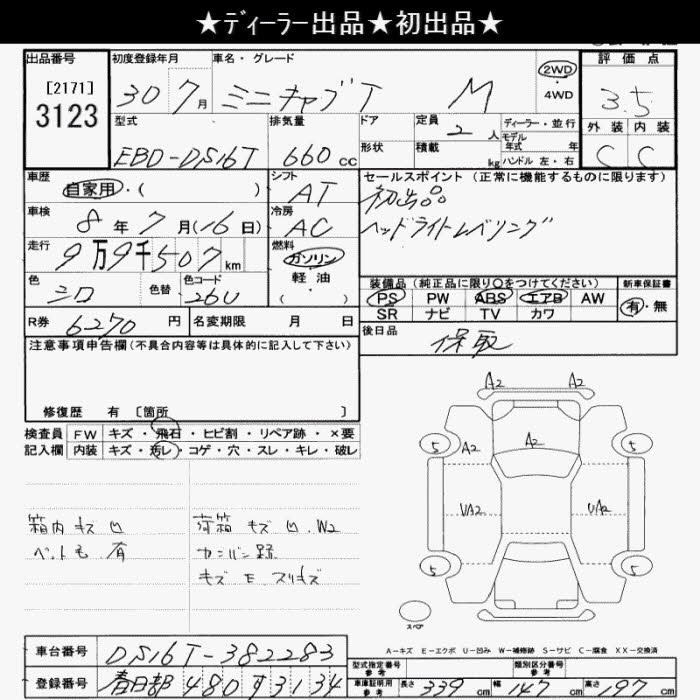 ★ディーラー出品★初出品★
出品番号 [2171] 3123
初度登録年月 30 7月
車名・グレード ミニキャブT M
2WD・4WD
評価点 3.5
外装 C 内装 C
型式 EBD-DS16T
排気量 660cc
ドア 形状
定員 2人
積載 kg
ディーラー・並行
モデル年式 年
ハンドル 左・右
車歴 自家用・( )
シフト AT
セールスポイント (正常に機能するものに限ります)
初出品
ヘッドライトレベリング
車検 8年7月(16日)
冷房 AC
走行 9万9千507km
燃料 ガソリン 軽油・( )
色 シロ 色替 色コード 26U
装備品 (純正品に限り○をつけてください)
新車保証書 有・無
PS PW ABS エアB AW
SR ナビ TV カワ
R券 6270円
名変期限 月 日
後日品 保取
注意事項申告欄 (不具合内容等は具体的に記入して下さい)
修復歴 有 〔箇所 〕
検査員記入欄
FW キズ・飛石・ヒビ割・リペア跡・×要
内装 キズ・汚レ・コゲ・穴・スレ・キレ・破レ
箱内 キズ 凹
荷箱 キズ 凹 W2
カンバン跡
キズ E スリキズ
A2 A2
5 A2 A2 5
UA2 UA2
5 5
スペア
A-キズ E-エクボ U-凹み W-補修跡 S-サビ C-腐食 XX-交換済
車台番号 DS16T-382283
登録番号 春日部 480 3134
型式指定番号 参考
類別区分番号 参考
車庫証明用参考 長さ 339cm 幅 147cm 高さ 197cm